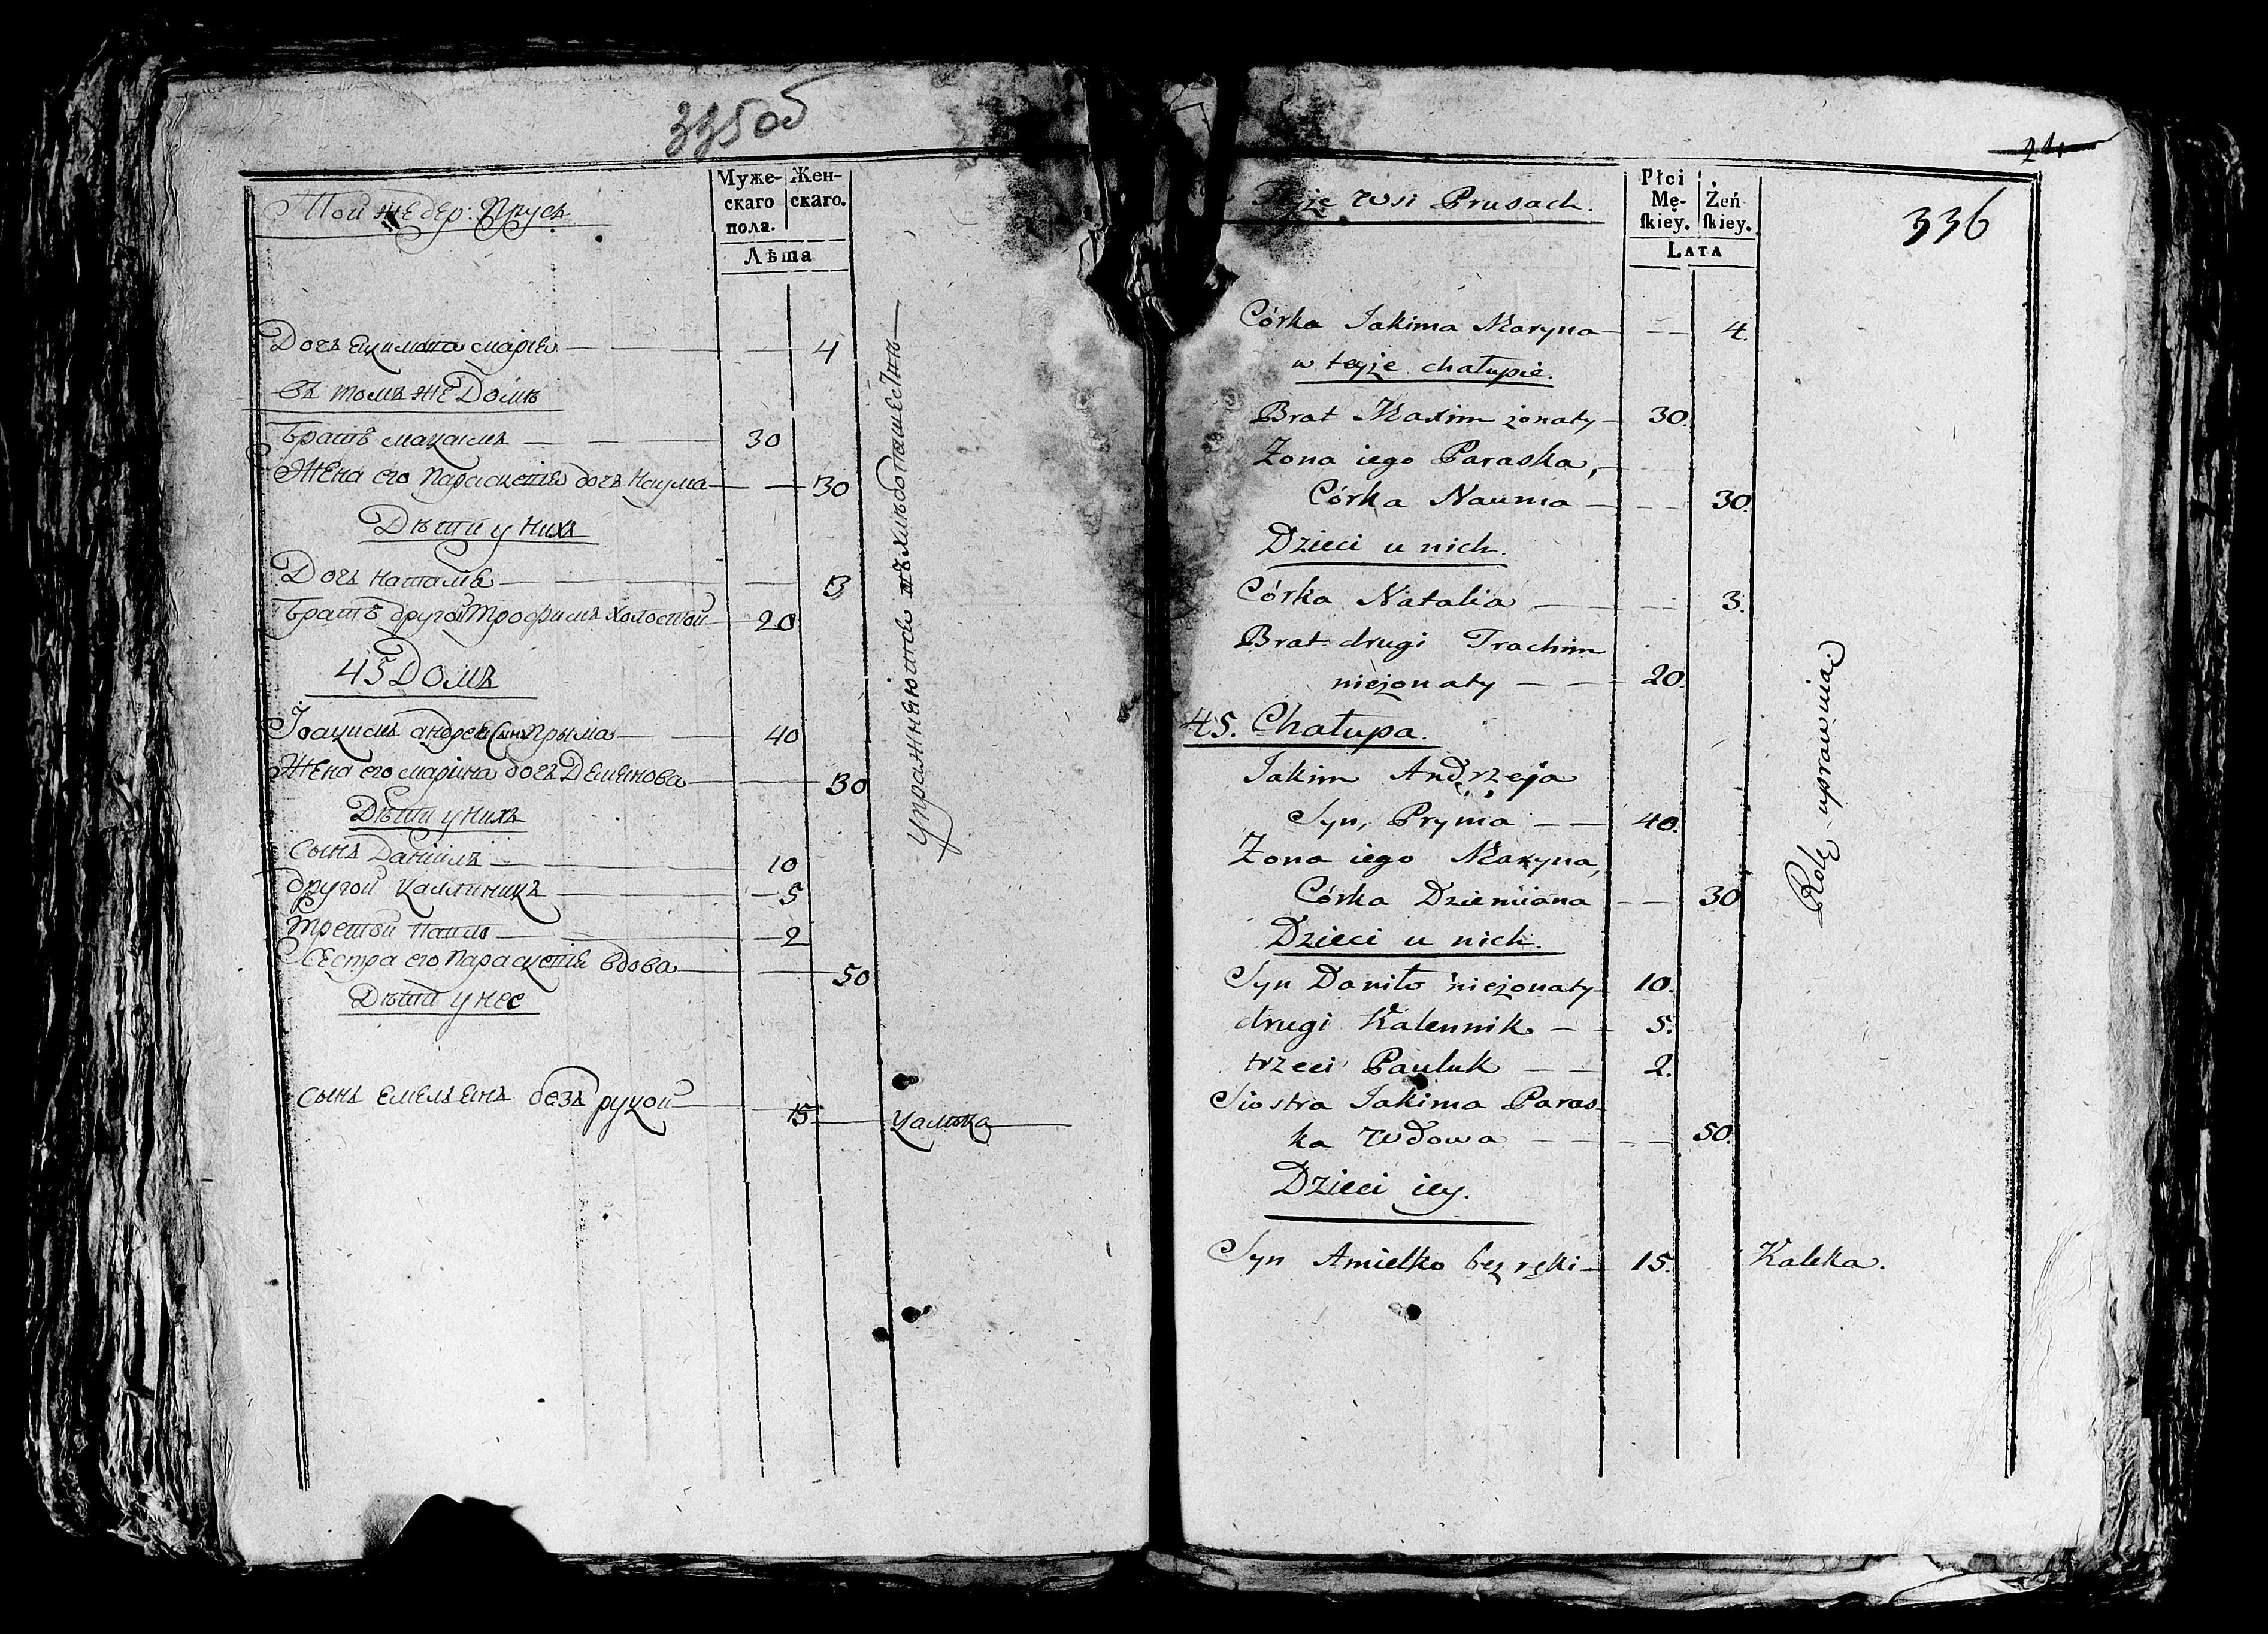 335об
Той же дер: Прусъ
Муже- Жен-
скаго скаго.
пола.
Лѣта
Дочь Якимова марія 4
въ томъ же Домѣ
Братъ максимъ 30
Жена его Параскевія дочь Наума 30
Дѣти у нихъ
Дочь наталія 3
Братъ другой Трофимъ холостой 20
45 Домъ
Іоакимъ андрея Сынъ Прыма 40
Жена его марина дочь Деменова 30
Дѣти у нихъ
Сынъ Даніилъ 10
другой Каллиникъ 5
третей Павлъ 2
Сестра его Параскевія вдова 50
Дѣти у нее
Сынъ Емельянъ безъ рукой 15 Калѣка
Упражняются въ хлѣбопашествѣ
21.
336
Teyże wsi Prusach.
Płci
Mę- Żeń
skiey. skiey.
LATA
Córka Jakima Maryna 4.
w teyże chałupie.
Brat Maxim żonaty 30.
Żona iego Paraska,
Córka Nauma 30.
Dzieci u nich.
Córka Natalia 3.
Brat drugi Trachim
nieżonaty 20.
45. Chałupa.
Jakim Andrzeja
Syn, Pryma 40.
Żona iego Maryna,
Córka Dziemiana 30
Dzieci u nich.
Syn Daniło nieżonaty 10.
drugi Kalennik 5.
trzeci Pauluk 2.
Siostra Jakima Paras-
ka Wdowa 50.
Dzieci iey.
Syn Amielko bez ręki 15. Kaleka.
Rolę uprawniaią